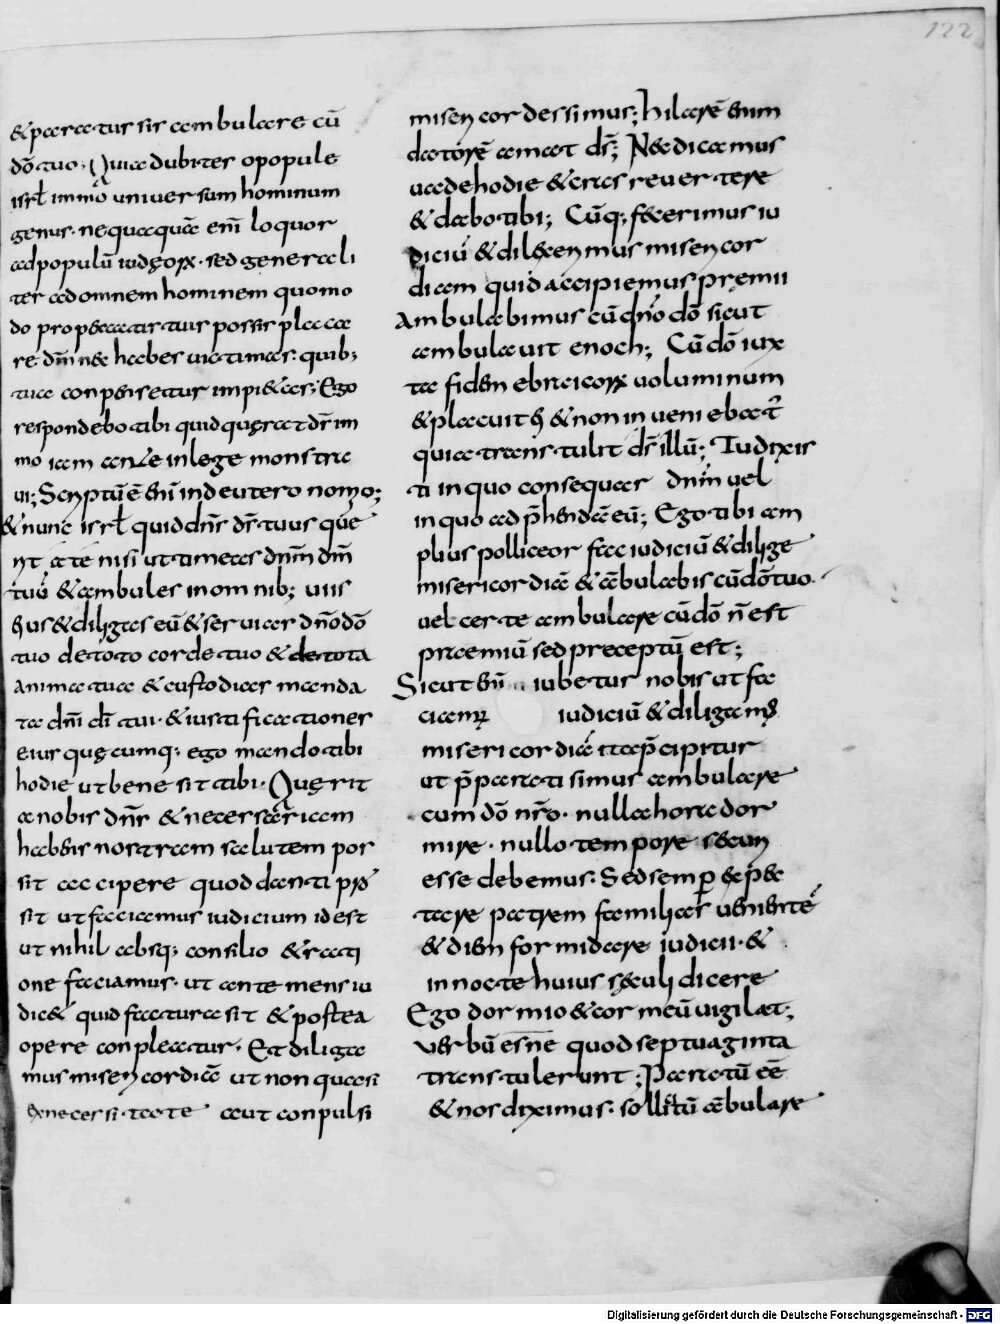 122
&paratus sis ambulare cū
dō tuo. Quia dubites o popule
isrl immo universum hominum
genus. nequaquā enī loquor
ad populū iudęorꝝ. sed generali
ter ad omnem hominem quomo
do propheta tuus possis placa
re dm̄ n& habes victimas. quib;
tua conpensetur impi&as; Ego
respondebo tibi quid quęrat ds̄ im
mo iam ante in lege monstra
vi; Scriptū ē enī in deuteronomio;
& nunc isrl quid dn̄s ds̄ tuus que
rit a te nisi ut timeas dn̄m dm̄
tuū & ambules in omnib; viis
eius & diligas eū & servias dn̄o dō
tuo de toto corde tuo & de tota
anima tua & custodias manda
ta dn̄i dī tui. & iustificationes
eius quęcumq; ego mando tibi
hodie ut bene sit tibi. Quęrit
a nobis dn̄s & necessariam
habens nostram salutem pos
sit accipere quod danti pro
sit ut faciamus iudicium id est
ut nihil absq; consilio & rati
one faciamus. ut ante mens iu
dic& quid factura sit & postea
opere conpleatur. Et diliga
mus misericordiā ut non quasi
ex necessitate aut conpulsi
misericordes simus; Hilarē enim
datorē amat ds̄; Nec dicamus
vade hodie & cras revertere
& dabo tibi; Cūq; fecerimus iu
diciū & dilexerimus misericor
diam quid accipiemus premii
Ambulabimus cū dn̄o dō sicut
ambulavit enoch; Cū dō iux
ta fidem ebraicorꝝ voluminum
& placuit ei & non inveniebat̄
quia transtulit ds̄ illū; Tu dixis
ti in quo consequar dn̄m vel
in quo adp̄hendā eū; Ego tibi am
plius polliceor fac iudiciū & dilige
misericordiā & ābulabis cū dō tuo.
vel certe ambulare cū dō n̄ est
praemiū sed preceptū est;
Sicut enī iubetur nobis ut fac
ciamꝰ iudiciū & diligamꝰ
misericordiā ita p̄cipitur
ut p̄parati simus ambulare
cum dō nr̄o. nulla hora dor
mire. nullo tempore securi
esse debemus. Sed semp̄ exp̄c
tare patrem familias venientē
& diem formidare iudicii. &
in nocte huius sęculi dicere
Ego dormio & cor meū vigilat;
Verbū esne quod septuaginta
transtulerunt; Paratū eē
& nos diximus. sollicitū ābulare
Digitalisierung gefördert durch die Deutsche Forschungsgemeinschaft - DFG